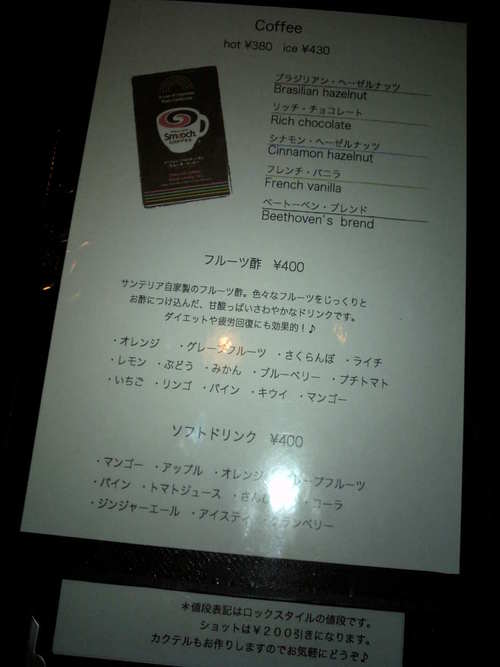 Coffee
hot ¥380 ice ¥430
Smooch
COFFEE
ブラジリアン・ヘーゼルナッツ
Brasilian hazelnut
リッチ・チョコレート
Rich chocolate
シナモン・ヘーゼルナッツ
Cinnamon hazelnut
フレンチ・バニラ
French vanilla
ベートーベン・ブレンド
Beethoven's brend
フルーツ酢 ¥400
サンテリア自家製のフルーツ酢。色々なフルーツをじっくりと
お酢につけ込んだ、甘酸っぱいさわやかなドリンクです。
ダイエットや疲労回復にも効果的！♪
・オレンジ ・グレープフルーツ ・さくらんぼ ・ライチ
・レモン ・ぶどう ・みかん ・ブルーベリー ・プチトマト
・いちご ・リンゴ ・パイン ・キウイ ・マンゴー
ソフトドリンク ¥400
・マンゴー ・アップル ・オレンジ ・グレープフルーツ
・パイン ・トマトジュース ・コーラ
・ジンジャーエール ・アイスティ ・クランベリー
＊値段表記はロックスタイルの値段です。
ショットは￥２００引きになります。
カクテルもお作りしますのでお気軽にどうぞ♪